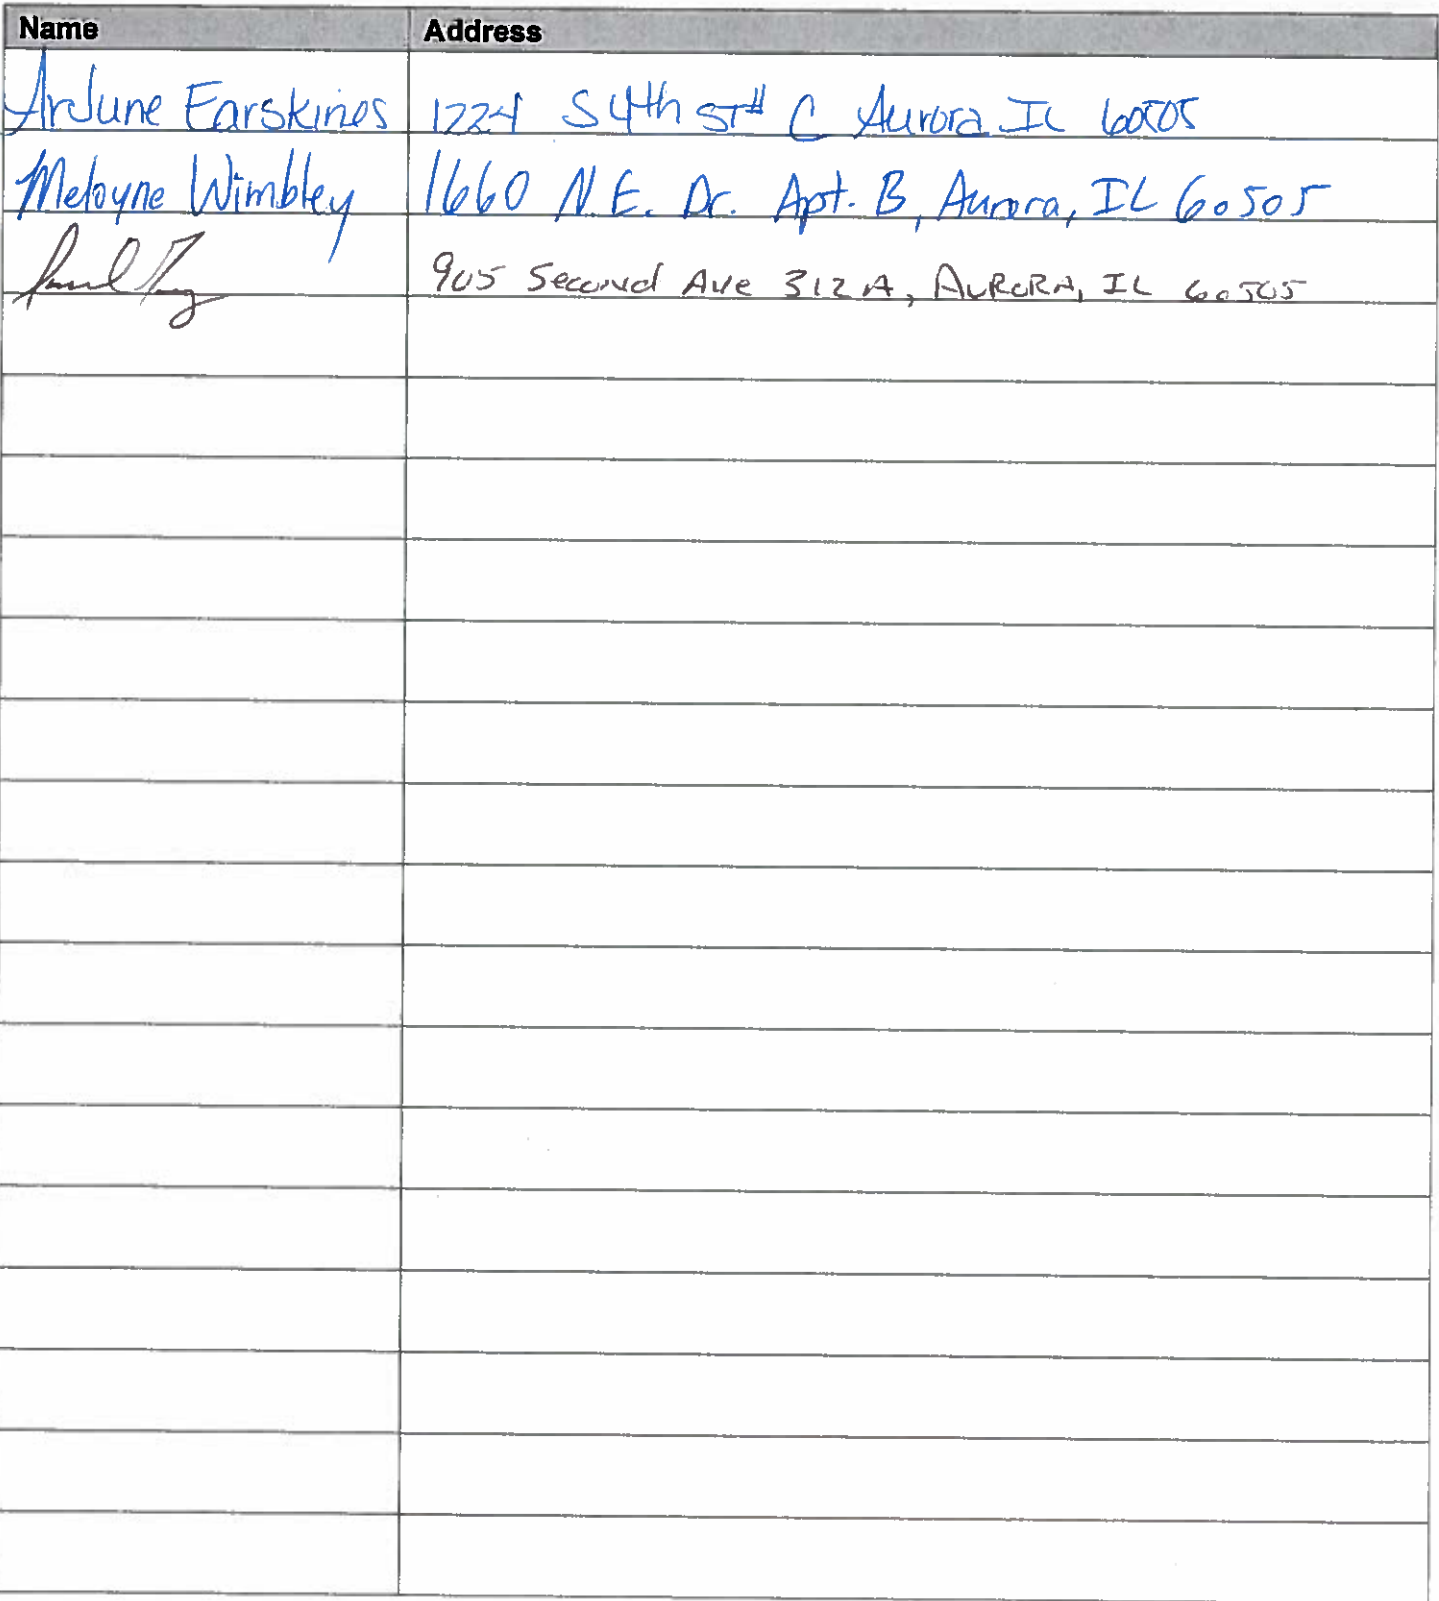 Name Address
ArJune Earskines 1224 S 4th ST # C Aurora IL 60505
Meloyne Wimbley 1660 N.E. Dr. Apt. B, Aurora, IL 60505
905 Second Ave 312A, AURORA, IL 60505